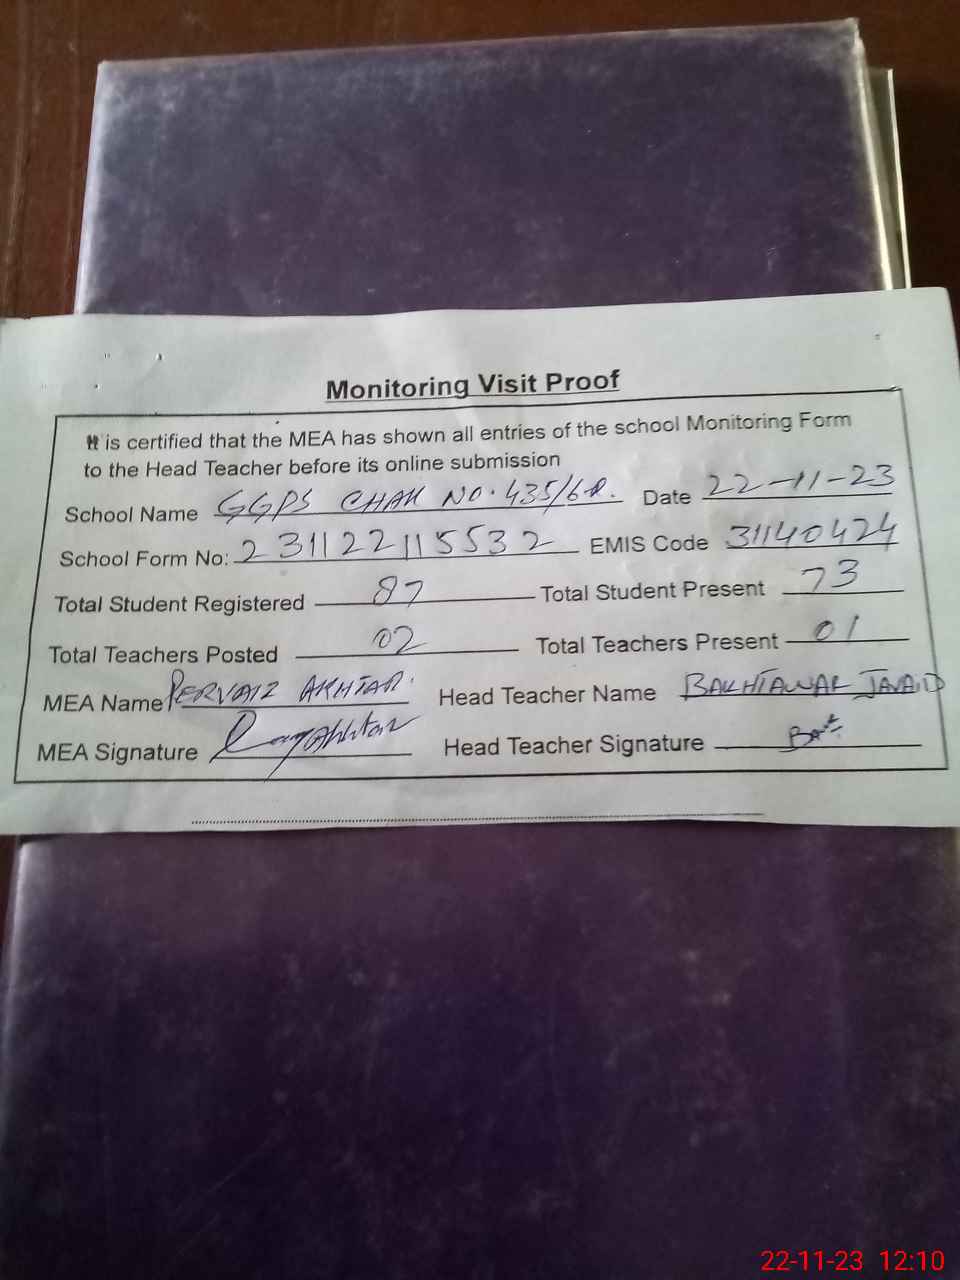 Monitoring Visit Proof
It is certified that the MEA has shown all entries of the school Monitoring Form
to the Head Teacher before its online submission
School Name GGPS CHAK NO. 435/6R. Date 22-11-23
School Form No: 231122115532 EMIS Code 31140424
Total Student Registered 87 Total Student Present 73
Total Teachers Posted 02 Total Teachers Present 01
MEA Name PERVAIZ AKHTAR. Head Teacher Name BAKHTAWAR JAVAID
MEA Signature Head Teacher Signature
22-11-23 12:10